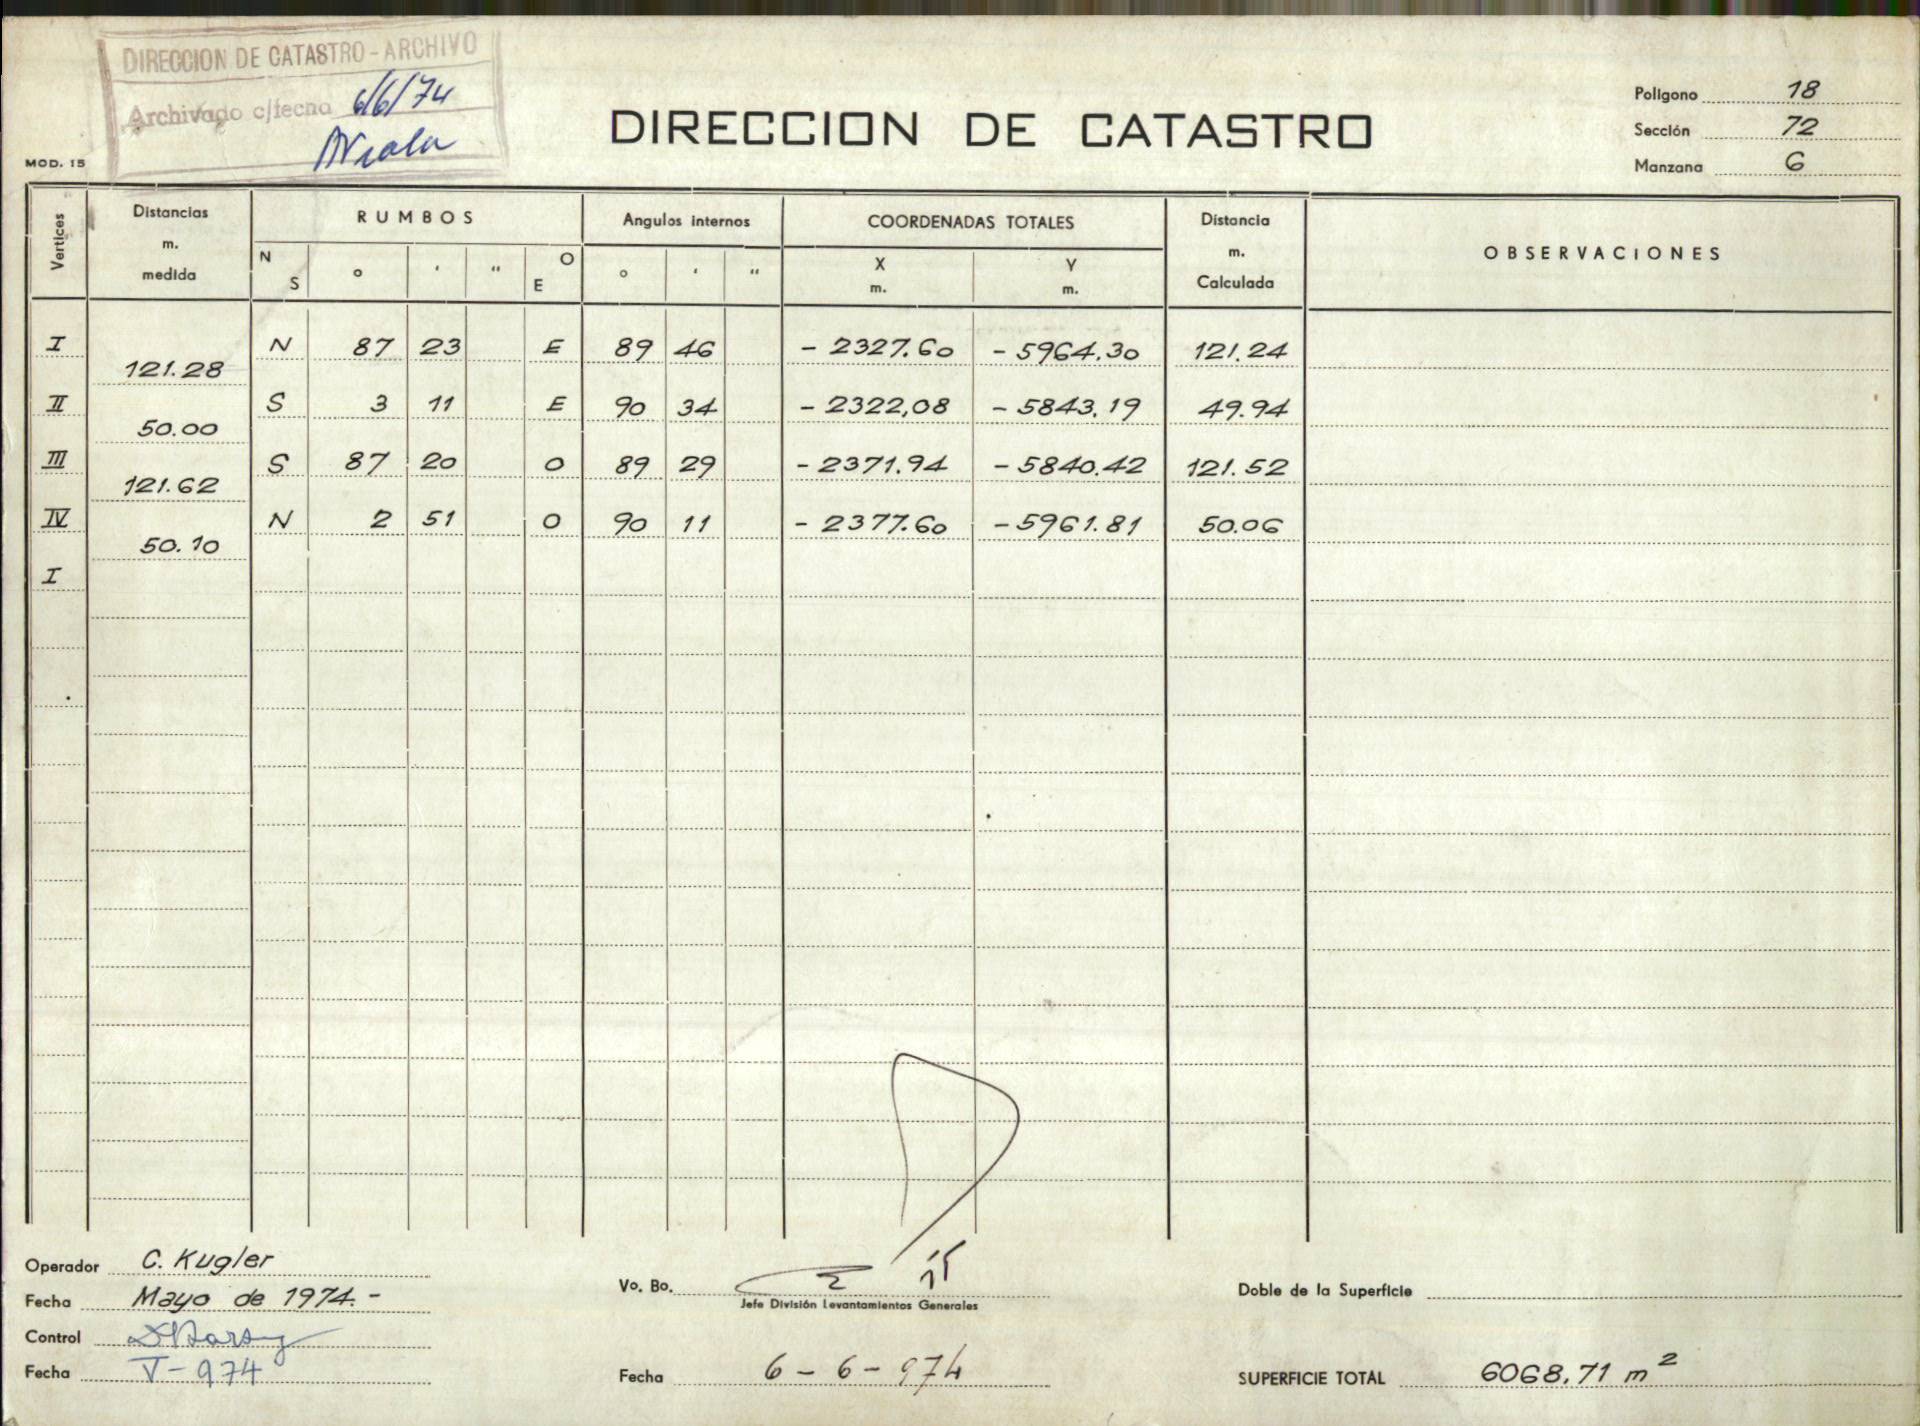 DIRECCION DE CATASTRO - ARCHIVO
Archivado c/fecha 6/6/74
MOD. 15
DIRECCION DE CATASTRO
Poligono 18
Sección 72
Manzana 6
Vertices
Distancias m. medida
RUMBOS
N S ° ' " O E
Angulos internos
° ' "
COORDENADAS TOTALES
X m. Y m.
Distancia m. Calculada
OBSERVACIONES
I N 87 23 E 89 46 - 2327.60 - 5964.30 121.24
121.28
II S 3 11 E 90 34 - 2322,08 - 5843.19 49.94
50.00
III S 87 20 O 89 29 - 2371.94 - 5840.42 121.52
121.62
IV N 2 51 O 90 11 - 2377.60 - 5961.81 50.06
50.10
I
Operador C. Kugler
Fecha Mayo de 1974.-
Control
Fecha V-974
Vo. Bo.
Jefe División Levantamientos Generales
Fecha 6-6-974
Doble de la Superficie
SUPERFICIE TOTAL 6068,71 m²